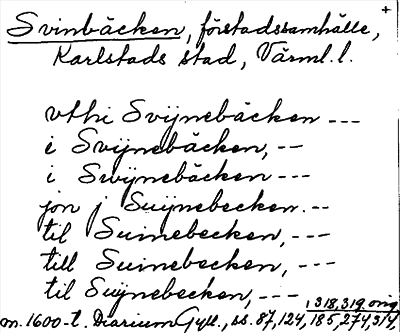 +
Svinbäcken, förstadssamhälle,
Karlstads stad, Värml. l.
vthi Svijnebäcken ---
i Svijnebäcken, --
i Swijnebäcken ---
jon j Suijnebecken. --
til Suinebecken, ---
till Suinebecken, ---
til Suijnebecken, ---
, 318, 319. orig
m. 1600-t. Diarium Gyll., ss. 87, 124, 185, 274, 314